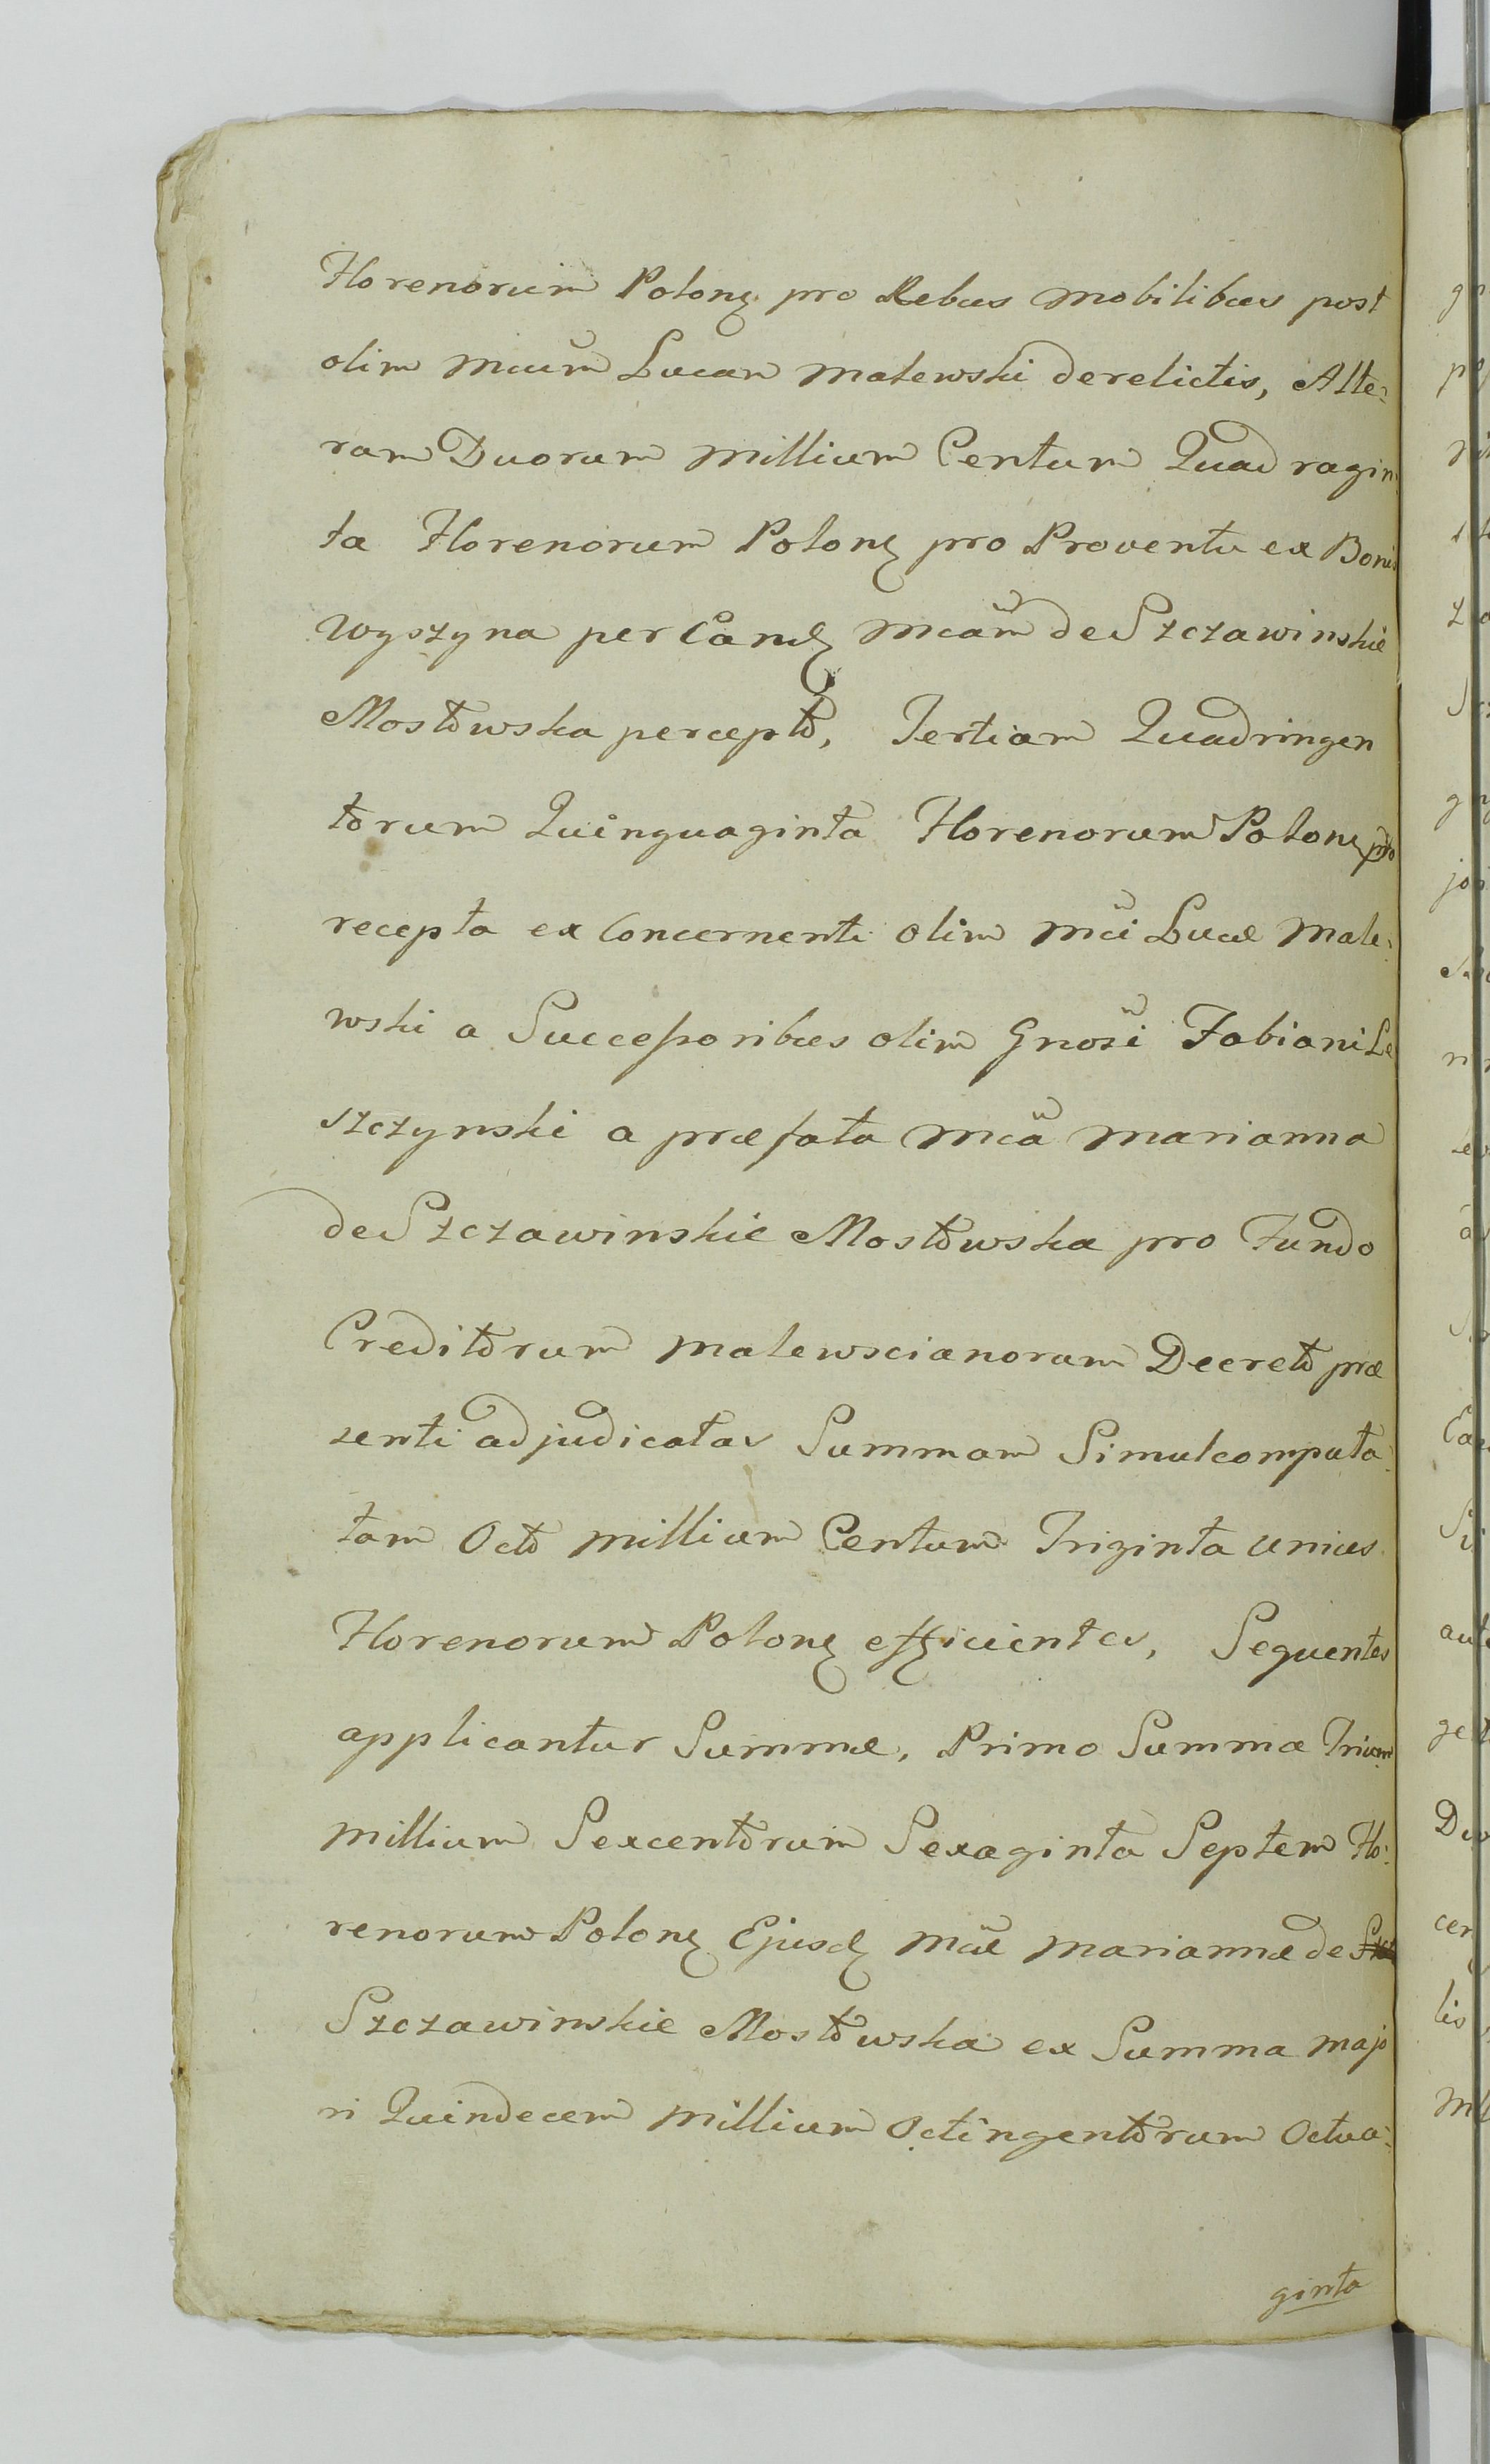 Florenorum Polonę pro Rebus mobilibus post
olim Mcum Lucam Malewski derelictis, Alte:
ram Duorum millium Centum Quadragin
ta Florenorum Polonę pro Proventu ex Bonis
Wyszyna per Eandę Mcam de Szczawinskie
Mostowska percepto, Tertiam Quadringen
torum Quinquaginta Florenorum Polonę pro
recepta ex Concernenti olim Mci Lucæ Male:
wski a Successoribus olim Gnosi Fabiani Le
szczynski a præfata Mca Marianna
de Szczawinskie Mostowska pro Fundo
Creditorum Malewscianorum Decreto præ
senti adjudicatas Summam Simulcomputa:
tam Octo millium Centum Triginta unius
Florenorum Polonę efficientes, Sequentes
applicantur Summæ, Primo Summa Trium
millium Sexcentorum Sexaginta Septem Flo:
renorum Polonę Ejusdę Mcæ Mariannæ de
Szczawinskie Mostowska ex Summa majo
ri Quindecem millium Octingentorum Octua:
ginta